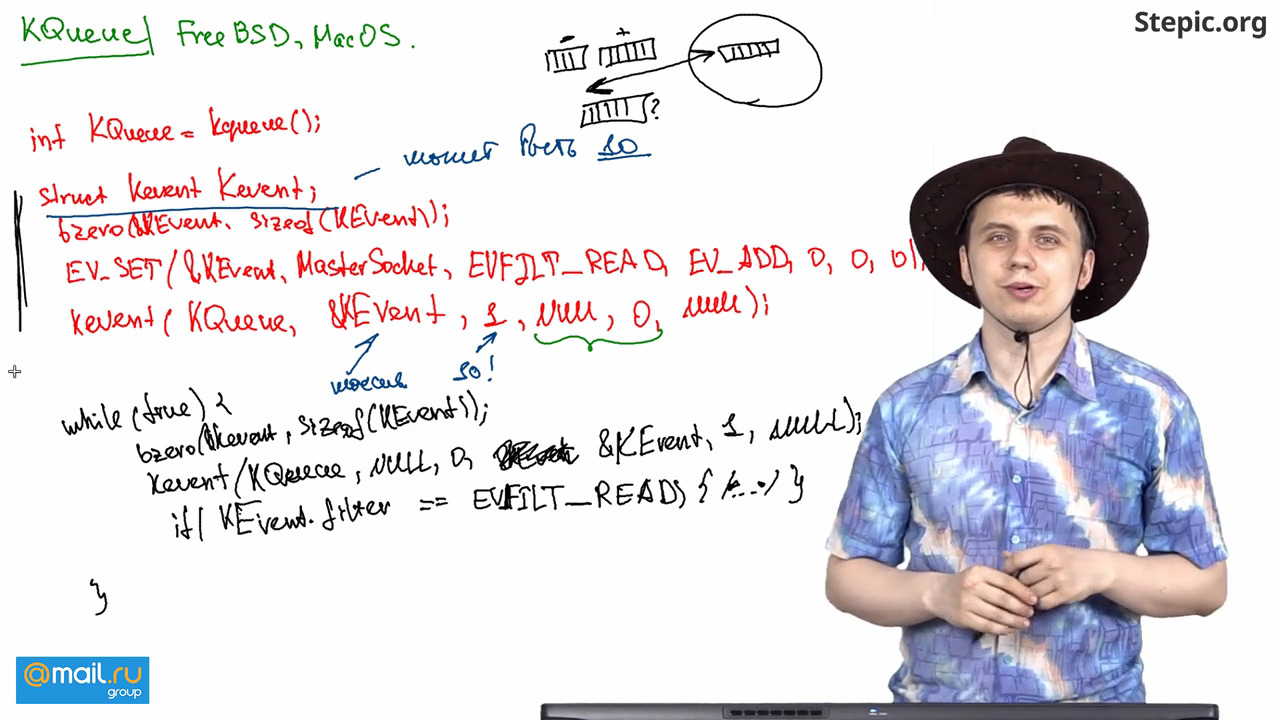 KQueue FreeBSD, MacOS.
Stepic.org
- +
?
int KQueue = kqueue();
может быть 10
struct kevent Kevent;
bzero(&KEvent, sizeof(KEvent));
EV_SET(&KEvent, MasterSocket, EVFILT_READ, EV_ADD, 0, 0, 0);
kevent(KQueue, &KEvent, 1, NULL, 0, NULL);
массив 10!
while (true) {
bzero(&Kevent, sizeof(KEvent));
kevent(KQueue, NULL, 0, &KEvent, 1, NULL);
if( KEvent.filter == EVFILT_READ) { /*...*/ }
}
@mail.ru
group